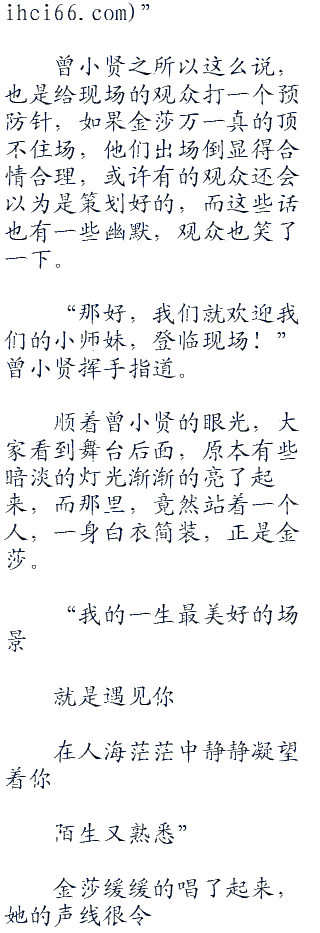 ihci66.com)”
曾小贤之所以这么说，
也是给现场的观众打一个预
防针，如果金莎万一真的顶
不住场，他们出场倒显得合
情合理，或许有的观众还会
以为是策划好的，而这些话
也有一些幽默，观众也笑了
一下。
“那好，我们就欢迎我
们的小师妹，登临现场！”
曾小贤挥手指道。
顺着曾小贤的眼光，大
家看到舞台后面，原本有些
暗淡的灯光渐渐的亮了起
来，而那里，竟然站着一个
人，一身白衣简装，正是金
莎。
“我的一生最美好的场
景
就是遇见你
在人海茫茫中静静凝望
着你
陌生又熟悉”
金莎缓缓的唱了起来，
她的声线很令